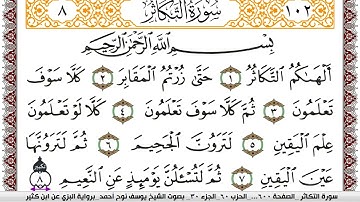 ١٠٢ سُورَةُ التَّكَاثُرِ ٨
بِسْمِ اللَّهِ الرَّحْمَٰنِ الرَّحِيمِ
أَلْهَىٰكُمُ ٱلتَّكَاثُرُ ١ حَتَّىٰ زُرْتُمُ ٱلْمَقَابِرَ ٢ كَلَّا سَوْفَ
تَعْلَمُونَ ٣ ثُمَّ كَلَّا سَوْفَ تَعْلَمُونَ ٤ كَلَّا لَوْ تَعْلَمُونَ
عِلْمَ ٱلْيَقِينِ ٥ لَتَرَوُنَّ ٱلْجَحِيمَ ٦ ثُمَّ لَتَرَوُنَّهَا
عَيْنَ ٱلْيَقِينِ ٧ ثُمَّ لَتُسْـَٔلُنَّ يَوْمَئِذٍ عَنِ ٱلنَّعِيمِ ٨
سورة التكاثر _الصفحة ٦٠٠... الحزب ٦٠_الجزء ٣٠ _ بصوت الشيخ يوسف نوح أحمد_برواية البزي عن ابن كثير